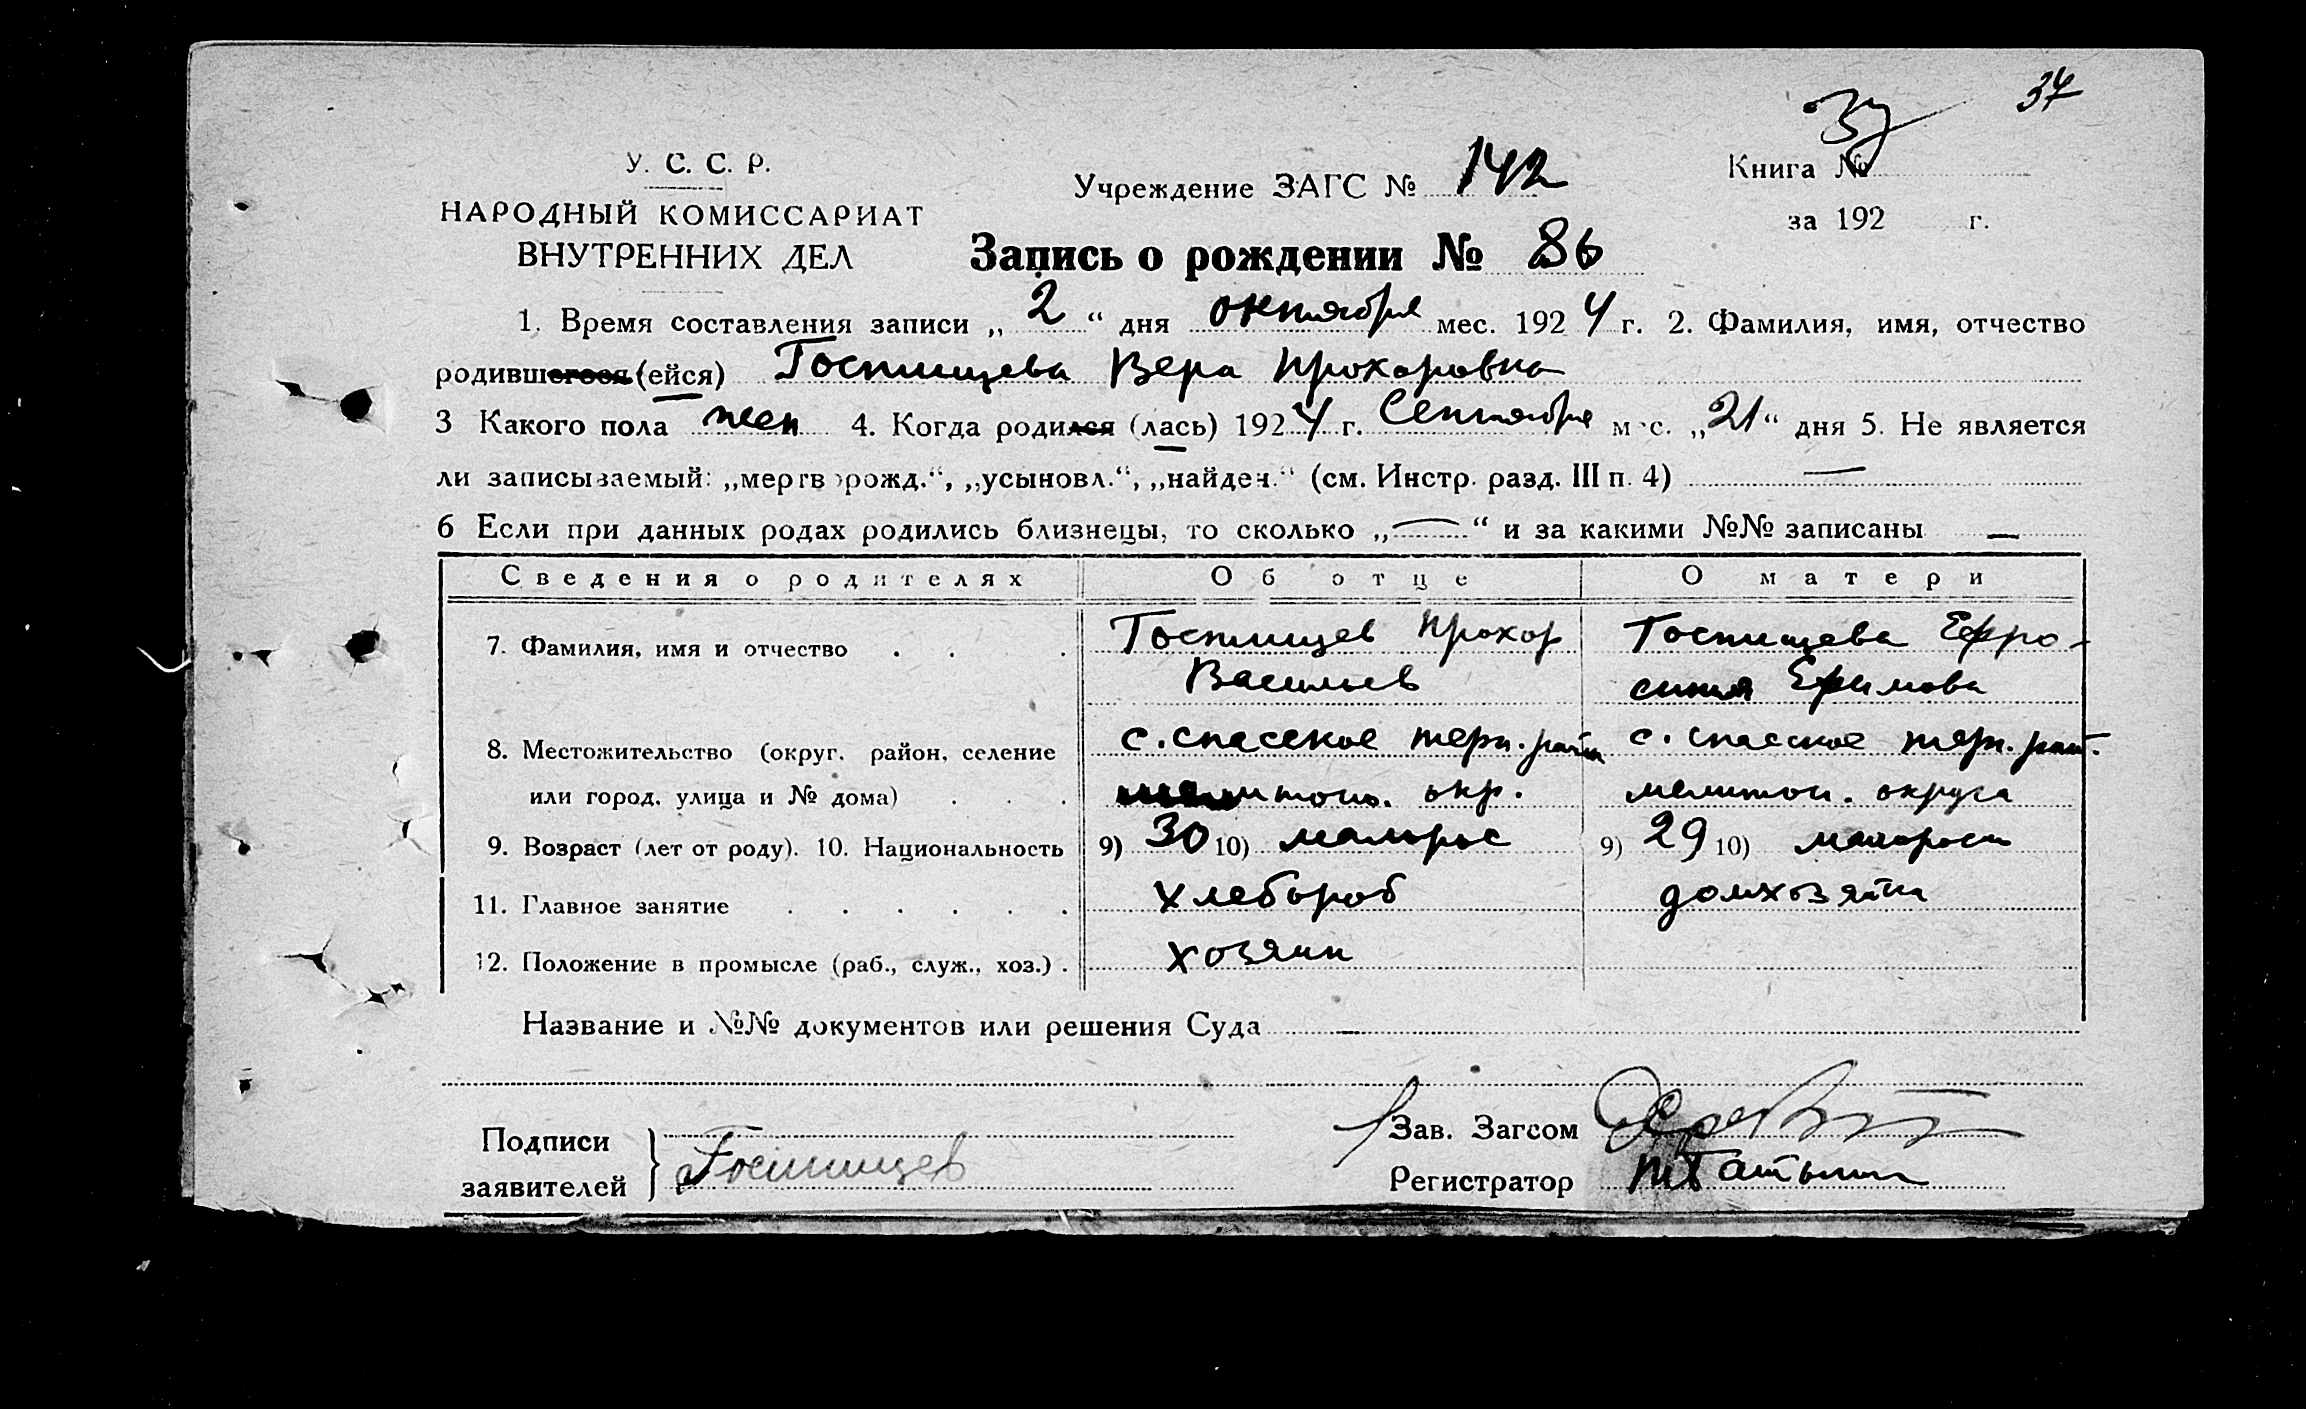 37
У. С. С. Р.
НАРОДНЫЙ КОМИССАРИАТ
ВНУТРЕННИХ ДЕЛ
Учреждение ЗАГС № 142
Книга №
за 192 г.
Запись о рождении № 86
1. Время составления записи „ 2 “ дня октября мес. 1924 г. 2. Фамилия, имя, отчество
родившегося (ейся) Гостищева Вера Прохоровна
3 Какого пола жен 4. Когда родился (лась) 1924 г. Сентября мес. „21“ дня 5. Не является
ли записываемый: „мертворожд.“, „усыновл.“, „найден.“ (см. Инстр. разд. III п. 4) —
6 Если при данных родах родились близнецы, то сколько „—“ и за какими №№ записаны —
Сведения о родителях Об отце О матери
7. Фамилия, имя и отчество . . . Гостищев Прохор Гостищева Ефро-
Васильев синия Ефимова
8. Местожительство (округ, район, селение с. спасское терп. район с. спасское терп. рай.
или город, улица и № дома) . . . мелитоп. окр. мелитоп. округа
9. Возраст (лет от роду). 10. Национальность 9) 30 10) малорос 9) 29 10) малорос
11. Главное занятие . . . . . . хлебороб домхозяйка
12. Положение в промысле (раб., служ., хоз.) . хозяин
Название и №№ документов или решения Суда —
Подписи
заявителей } Гостищев
Зав. Загсом
Регистратор